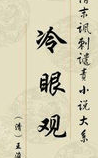 清末讽刺谴责小说大系
冷眼观
（清）王濬